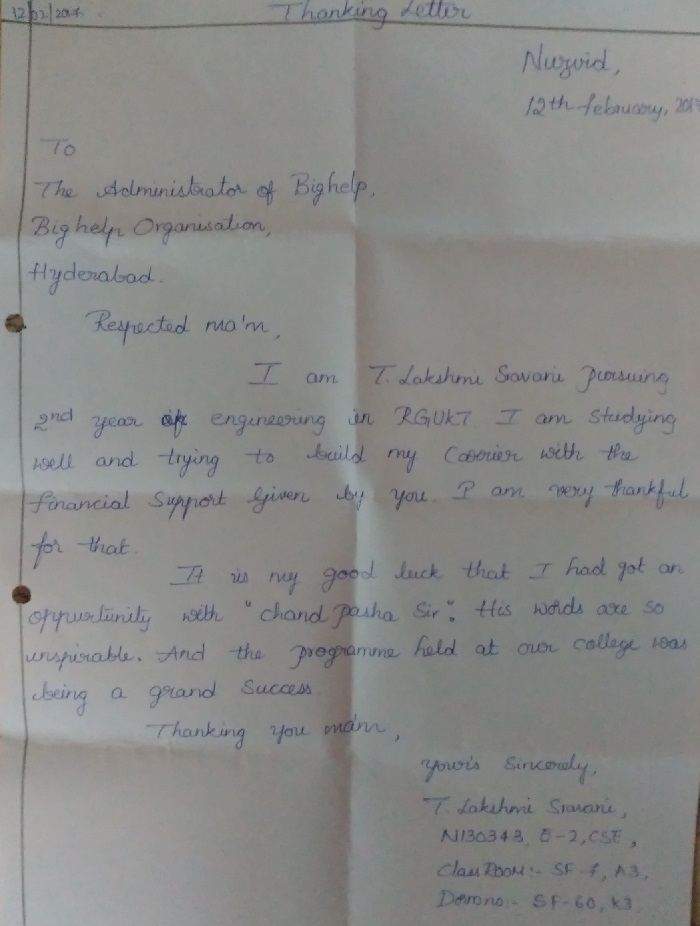 12/02/2017.
Thanking Letter
Nuzvid,
12th february, 201
To
The Administrator of Bighelp,
Bighelp Organisation,
Hyderabad.
Respected ma'm,
I am T. Lakshmi Sravani pursuing
2nd year of engineering in RGUKT. I am studying
well and trying to build my Carrier with the
financial Support Given by you. I am very thankful
for that.
It is my good luck that I had got an
oppurtunity with "chand pasha Sir". His words are so
inspirable. And the programme held at our college was
being a grand Success.
Thanking you mam,
Your's Sincerely,
T. Lakshmi Sravani,
N130343, E-2, CSE,
Class Room:- SF-7, A3,
Dormno:- SF-60, K3.